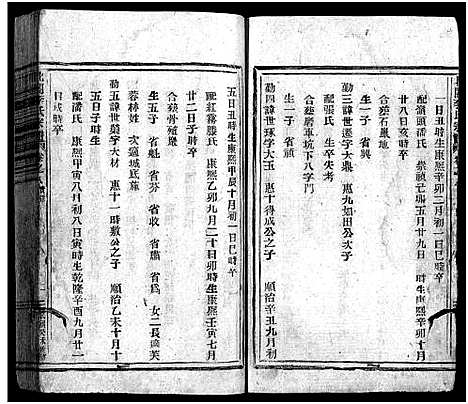 一日丑時生康熙辛卯二月初一日巳時卒
配灝頭潘氏 崇禎己卯五月廿九日 康熙辛卯十月
廿二日亥時卒
合葬石嚴墈
生一子 省與
勤三諱世遴字大鼎 惠九如田公次子
配張氏 生卒失考
合葬磨車坑下八字門
生一子 省禎
勤四諱世琢字大玉 惠十得成公之子 順治辛丑九月初
五日丑時生康熙甲辰十月初一日巳時卒
配紅霧滕氏 康熙乙卯九月二十日卯時生康熙壬寅七月
廿二日子時卒
合葬骨殖嚴
生五子 省魁 省芬 省收 省爲 女二長適芙
蓉林姓 次適城底葉
勤五諱世槃字大材 惠十一時敷公之子 順治乙未十月十
五日子時生
配潘氏 康熙甲寅八月初八日寅時生乾隆辛酉九月廿一
日戌時卒